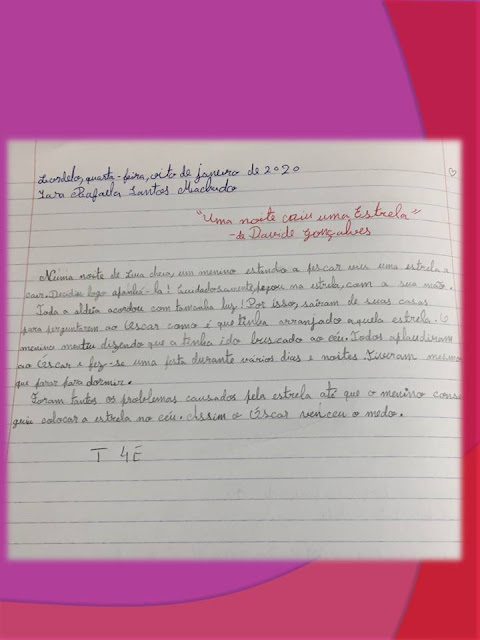 Lordelo, quarta-feira, oito de janeiro de 2020
Iara Rafaela Santos Machado
"Uma noite caiu uma Estrela"
- de Davide Gonçalves
Numa noite de Lua cheia, um menino estando a pescar viu uma estrela a
cair. Decidiu logo apanhá-la! Cuidadosamente, pegou na estrela, com a sua mão.
Toda a aldeia acordou com tamanha luz! Por isso, saíram de suas casas
para perguntarem ao Óscar como é que tinha arranjado aquela estrela. O
menino mentiu dizendo que a tinha ido buscado ao céu. Todos aplaudiram
ao Óscar e fez-se uma festa durante vários dias e noites. Tiveram mesmo
que parar para dormir.
Foram tantos os problemas causados pela estrela até que o menino conse
guiu colocar a estrela no céu. Assim o Óscar venceu o medo.
T 4E